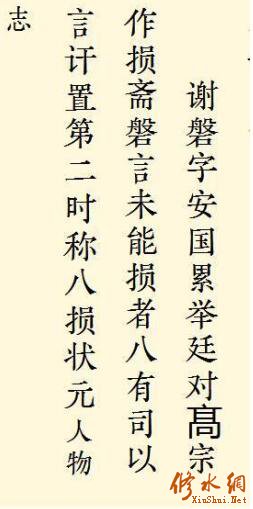 谢磐字安国累举廷对髙宗
作损斋磐言未能损者八有司以
言讦置第二时称八损状元人物
志
修水網
XiuShui.Net